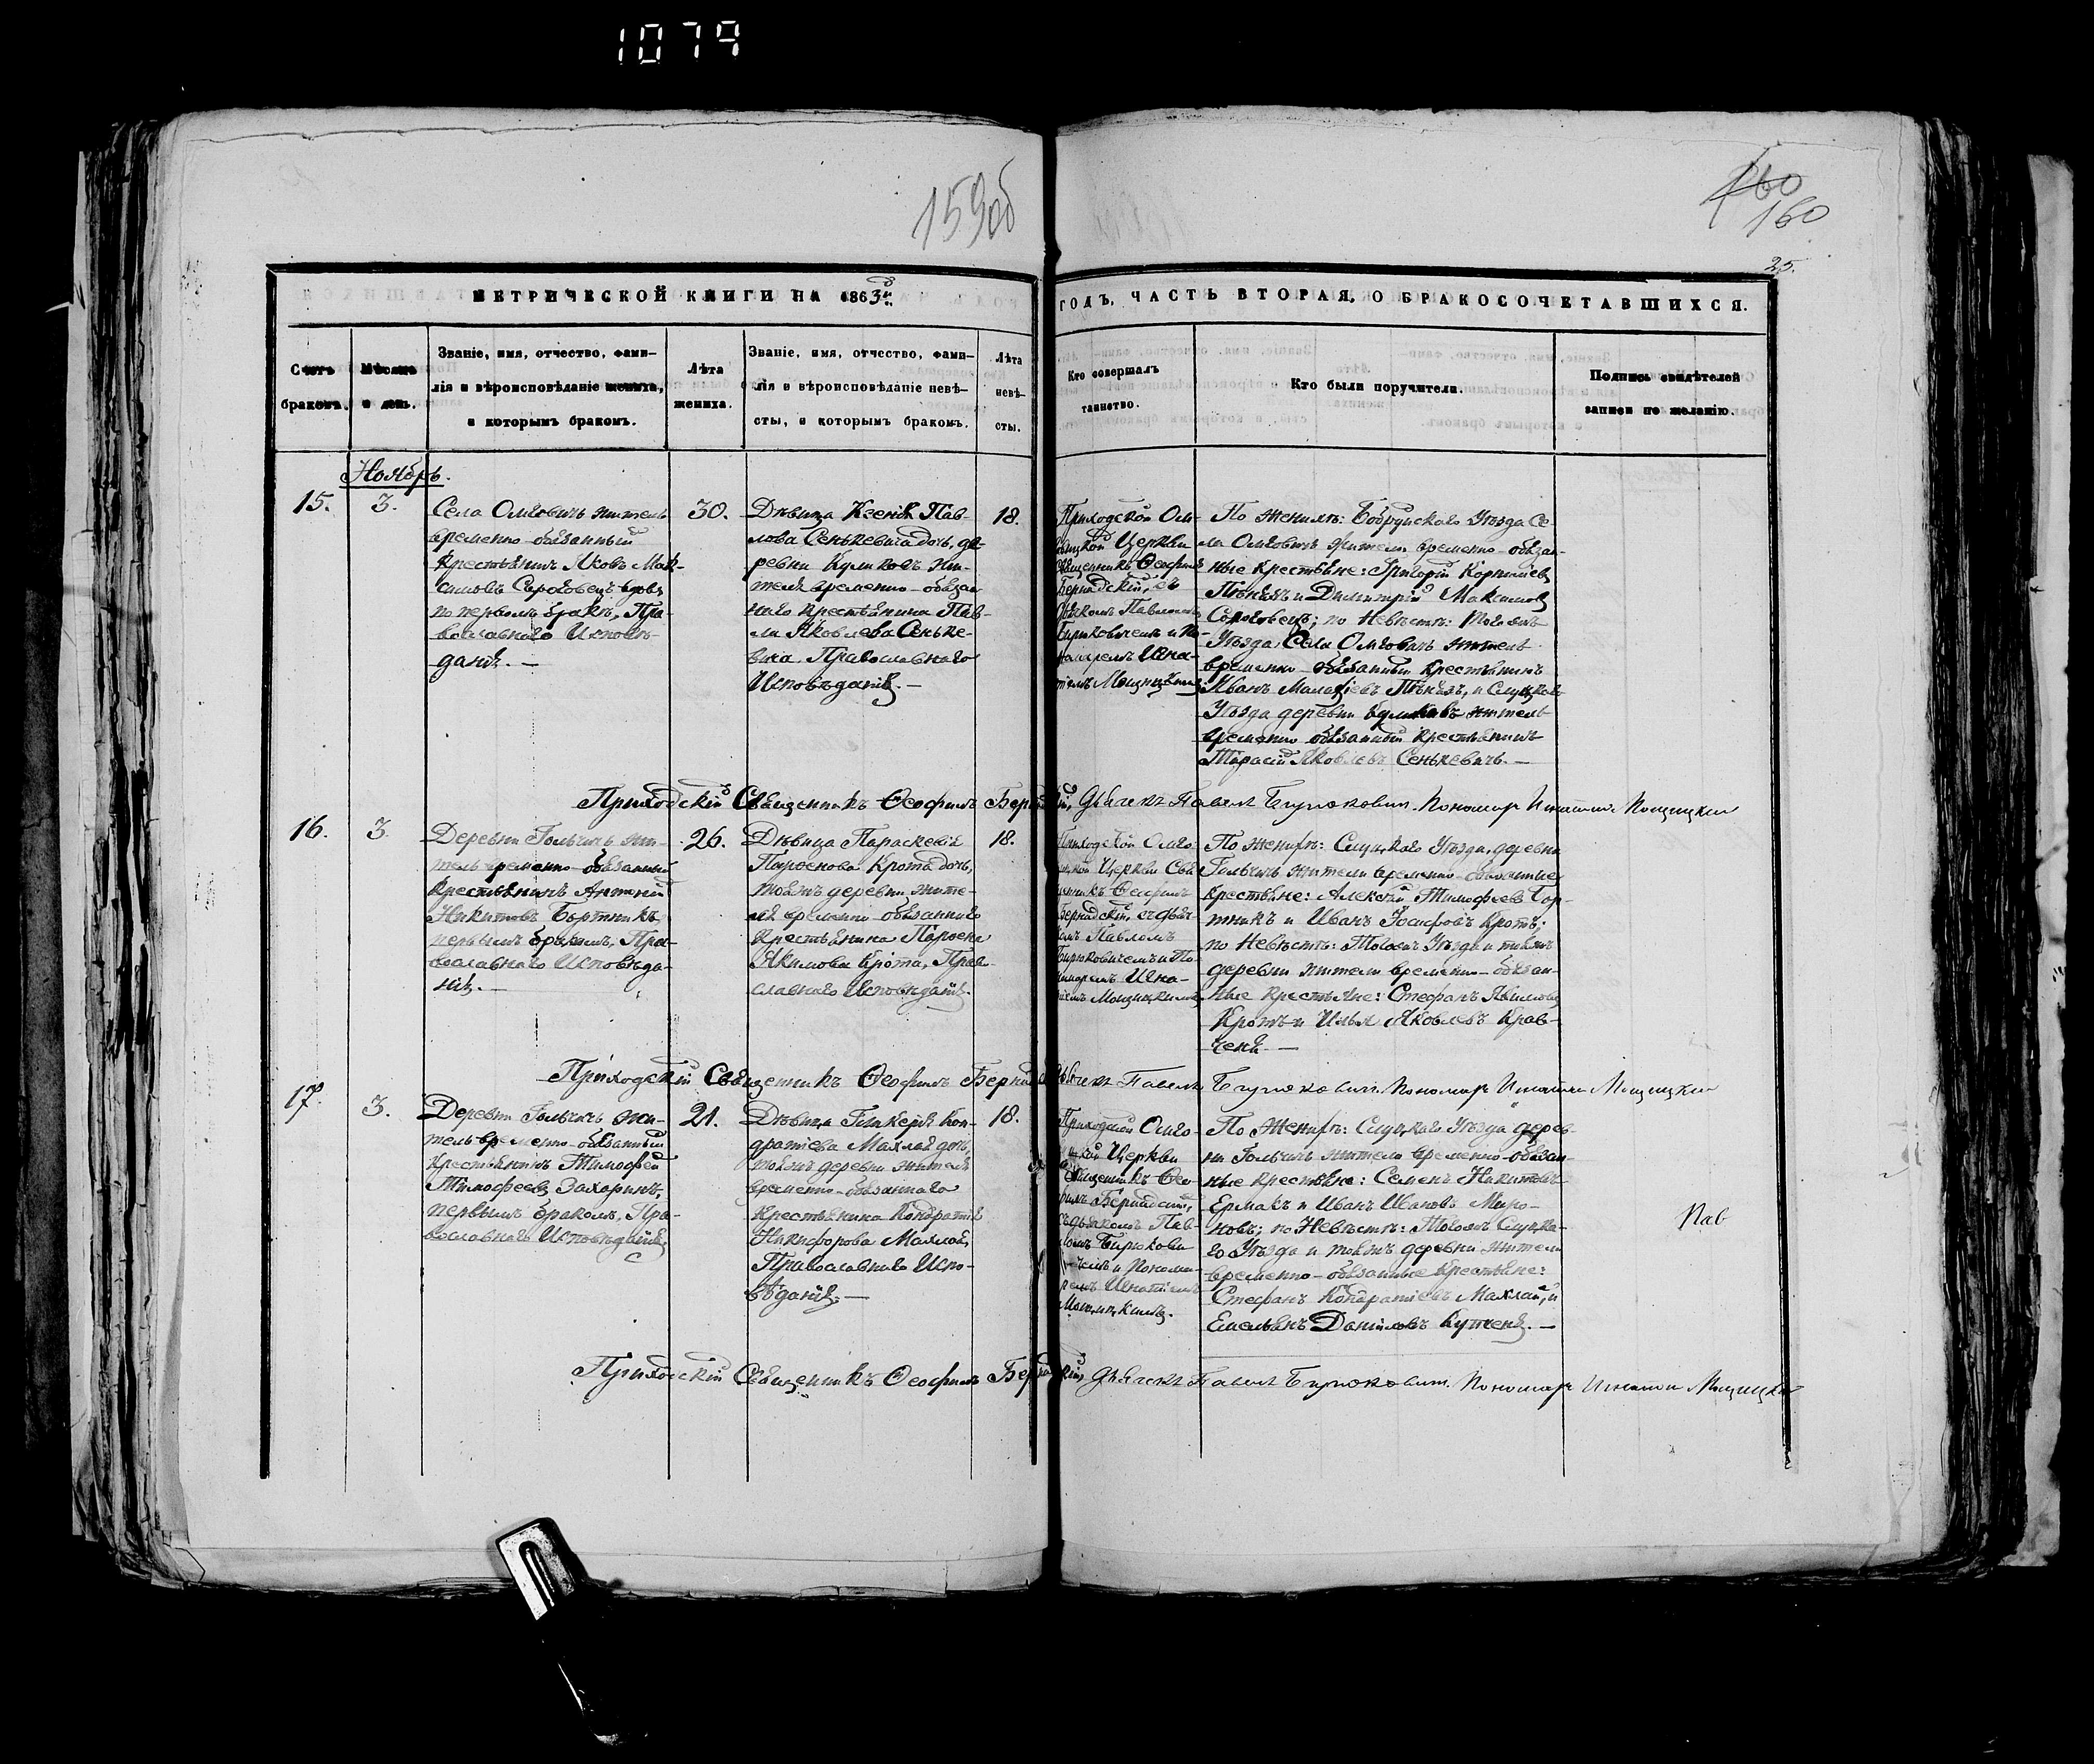 1079
159об
160
160
25.
МЕТРИЧЕСКОЙ КНИГИ НА 1863й
ГОДЪ, ЧАСТЬ ВТОРАЯ, О БРАКОСОЧЕТАВШИХСЯ.
Счетъ
браковъ.
Мѣсяцъ
и день.
Званіе, имя, отчество, фами-
лія и вѣроисповѣданіе жениха,
и которымъ бракомъ.
Лѣта
жениха.
Званіе, имя, отчество, фами-
лія и вѣроисповѣданіе невѣ-
сты, и которымъ бракомъ.
Лѣта
невѣ-
сты.
Кто совершалъ
таинство.
Кто были поручители.
Подпись свидѣтелей
записи по желанію.
Ноябрь.
15.
3.
Села Омговичъ житель
временно-обязанный
Крестьянинъ Яковъ Мак-
симовъ вдовъ
по первомъ бракѣ, Пра-
вославнаго Исповѣ-
данія. —
30.
Дѣвица Ксенія Пав-
лова Сенькевича дочь, де-
ревни Куликовъ жи-
теля временно-обязан
наго крестьянина Пав-
ла Яковлева Сеньке-
вича. Православнаго
Исповѣданія. —
18.
Приходской Ом-
говицкой Церкви
Священникъ Ѳеофилъ
Бернадскій, съ
Дьячкомъ Павломъ
Бирюковичемъ и По-
номаремъ Игна-
тіемъ Мощицкимъ
По женихѣ: Бобруйскаго Уѣзда Се-
ла Омговичъ жители временно-обязан-
ные крестьяне: Григорій Корнѣевъ
и Димитрій Максимовъ
по Невѣстѣ: Тогожъ
Уѣзда, Села Омговичъ житель
временно-обязанный Крестьянинъ
Иванъ Малахіевъ и Слуцкаго
Уѣзда деревни Куликовъ житель
временно обязанный крестьянинъ
Тарасій Яковлевъ Сенькевичъ. —
Приходскій Священникъ Ѳеофилъ Бернадскій, Дьячекъ Павелъ Бирюковичъ. Пономарь Игнатій Мощицкій
16.
3.
Деревни Гольчичъ жи-
тель временно-обязанный
Крестьянинъ Антоній
Никитовъ Бортникъ
первымъ бракомъ, Пра-
вославнаго Исповѣда-
нія. —
26.
Дѣвица Параскевія
Парѳенова Крота дочь,
тояжъ деревни жите-
ля временно-обязаннаго
Крестьянина Парѳена
Якимова Крота, Право-
славнаго Исповѣданія.
18.
Приходской Омго-
вицкой Церкви Свя
щенникъ Ѳеофилъ
Бернадскій, съ Дьяч-
комъ Павломъ
Бирюковичемъ и По-
номаремъ Игна-
тіемъ Мощицкимъ
По женихѣ: Слуцкаго Уѣзда, деревни
Гольчичъ жители временно-обязанные
крестьяне: Алексѣй Тимофеевъ Бор-
тникъ и Иванъ Іосифовъ Кротъ;
по Невѣстѣ: Тогожъ Уѣзда и тояжъ
деревни жители временно-обязан-
ные крестьяне: Стефанъ Якимовъ
Кротъ и Илья Яковлевъ Крав-
ченя. —
Приходскій Священникъ Ѳеофилъ Бернадскій Дьячекъ Павелъ Бирюковичъ. Пономарь Игнатій Мощицкій
17.
3.
Деревни Гольчичъ жи-
тель временно-обязанный
Крестьянинъ Тимофей
Тимофеевъ Захаринъ,
первымъ бракомъ, Пра-
вославнаго Исповѣданія.
21.
Дѣвица Гликерія Кон-
дратіева Махлая дочь,
тояжъ деревни жителя
временно-обязаннаго
Крестьянина Кондратія
Никифорова Махлая,
Православнаго Испо-
вѣданія. —
18.
Приходской Омго-
вицкой Церкви
Священникъ Ѳео-
филъ Бернадскій,
съ Дьячкомъ Пав-
ломъ Бирюкови
чемъ и Понома-
ремъ Игнатіемъ
Мощицкимъ.
По женихѣ: Слуцкаго Уѣзда дерев-
ни Гольчичъ жители временно-обязан-
ные крестьяне: Семенъ Никитовъ
Ермакъ и Иванъ Ивановъ Миро-
новъ; по Невѣстѣ: Тогожъ Слуцка-
го Уѣзда и тояжъ деревни жители
временно-обязанные Крестьяне:
Стефанъ Кондратіевъ Махлай, и
Емельянъ Даниловъ Кутченя. —
Пав
Приходскій Священникъ Ѳеофилъ Бернадскій, Дьячекъ Павелъ Бирюковичъ. Пономарь Игнатій Мощицкій